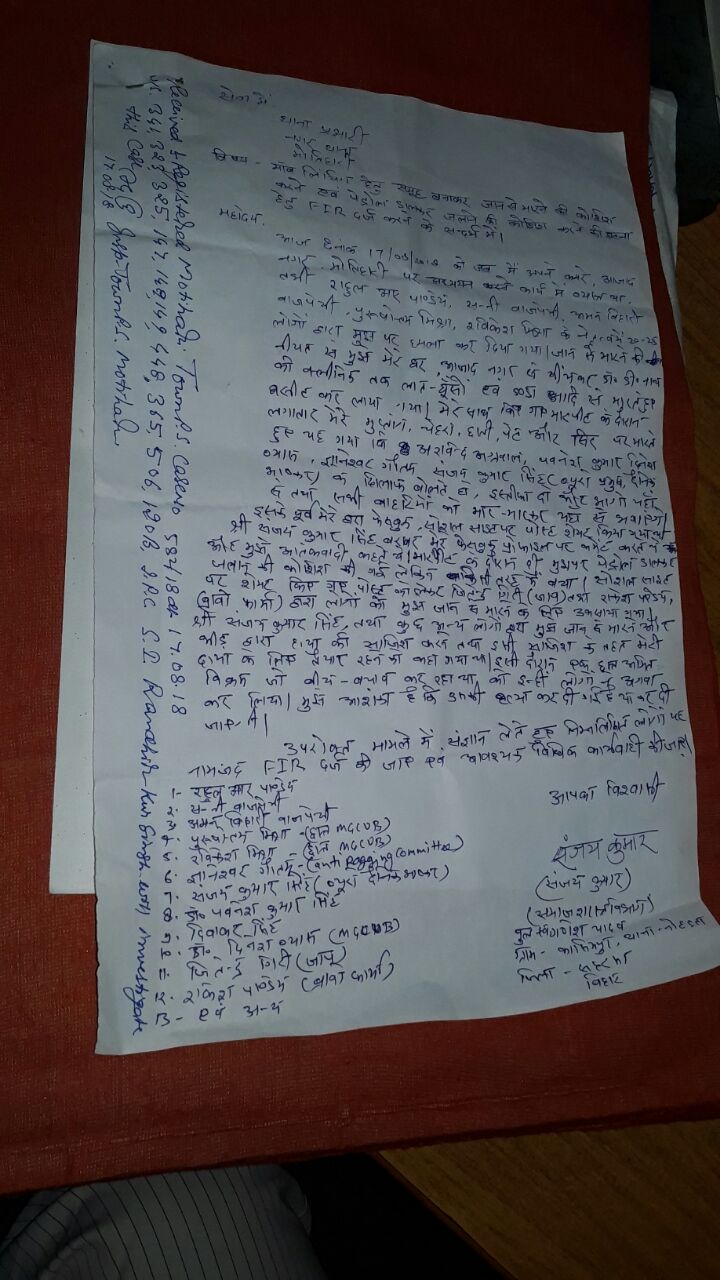 सेवा में
थाना प्रभारी
नगर थाना
मोतिहारी
विषय - मॉब लिंचिंग हेतु समूह बनाकर जान से मारने की कोशिश
करने एवं पेट्रोल डालकर जलाने की कोशिश करने की घटना
हेतु FIR दर्ज करने के सन्दर्भ में।
महोदय,
आज दिनांक 17/08/2018 को जब मैं अपने कमरे, आजाद
नगर मोतिहारी पर अध्ययन कार्य में व्यस्त था
तभी राहुल आर पाण्डेय, सन्नी वाजपेयी, अमन बिहारी
वाजपेयी, पुरुषोत्तम मिश्रा, रविकेश मिश्रा के नेतृत्व में 20-25
लोगों द्वारा मुझ पर हमला कर दिया गया। जान से मारने की
नीयत से मुझे मेरे घर, आजाद नगर से खींचकर डॉ. डी. नाथ
की क्लीनिक तक लात-घूंसों एवं डंडा आदि से मारते हुए
घसीट कर लाया गया। मेरे साथ किए गए मारपीट के दौरान
लगातार मेरे गुप्तांग, चेहरा, छाती, पेट और सिर पर मारते
हुए यह कहा गया कि अरविन्द अग्रवाल, पवनेश कुमार, दिनेश
व्यास, ज्ञानेश्वर गौतम, संजय कुमार सिंह (ब्यूरो प्रमुख, दैनिक
भास्कर) के खिलाफ बोलते हो, इस्तीफा दो और भागो यहाँ
से तथा सभी बाहरियों को मार-मारकर यहाँ से भगाएंगे।
इसके पूर्व मेरे द्वारा फेसबुक, सोशल साइट पर पोस्ट शेयर किया गया था
श्री संजय कुमार सिंह बराबर मेरे फेसबुक प्रोफाइल पर कमेंट करते थे
और मुझे आतंकवादी कहते थे। मारपीट के दौरान ही मुझपर पेट्रोल डालकर
जलाने की कोशिश की गई लेकिन किसी तरह मैं बचा। सोशल साइट
पर शेयर किए गए पोस्ट को लेकर जितेन्द्र गिरी (जापू) तथा राकेश पाण्डेय,
(बाबा फार्मा) द्वारा लोगों को मुझे जान से मारने के लिए उकसाया गया।
श्री संजय कुमार सिंह, तथा कुछ अन्य लोगों द्वारा मुझे जान से मारने और
भीड़ द्वारा हत्या की साजिश करने तथा इसी साजिश के तहत मेरी
हत्या के लिए तैयार रहने को कहा गया था। इसी दौरान एक छात्र
विक्रम जो बीच-बचाव कर रहा था, को इन्हीं लोगों ने अगवा
कर लिया। मुझे आशंका है कि उसकी हत्या कर दी गई है या कर दी
जाएगी।
उपरोक्त मामले में संज्ञान लेते हुए निम्नलिखित लोगों पर
नामजद FIR दर्ज की जाए एवं आवश्यक वैधानिक कार्यवाही की जाए।
आपका विश्वासी
संजय कुमार
(संजय कुमार)
(समाजशास्त्र विभाग)
ग्राम - थाना -
जिला -
बिहार
1- राहुल आर पाण्डेय
2- सन्नी वाजपेयी
3- अमन बिहारी वाजपेयी
4- पुरुषोत्तम मिश्रा - (छात्र MGCUB)
5- रविकेश मिश्रा (छात्र MGCUB)
6- ज्ञानेश्वर गौतम - (anti Ragging Committee)
7- संजय कुमार सिंह (ब्यूरो दैनिक भास्कर)
8- डॉ. पवनेश कुमार सिंह
9- दिवाकर सिंह
10- डॉ. दिनेश व्यास (MGCUB)
11- जितेन्द्र गिरी (जापू)
12- राकेश पाण्डेय (बाबा फार्मा)
13- एवं अन्य
Received & Registered Motihari Town P.S. Case no 587/18 dt 17.08.18
u/s 341, 323, 325, 147, 148, 149, 448, 365, 506, 120B IPC S.I. Ranadhir Kumar Singh will investigate
this Case
Insp Town P.S. Motihari
17.08.18